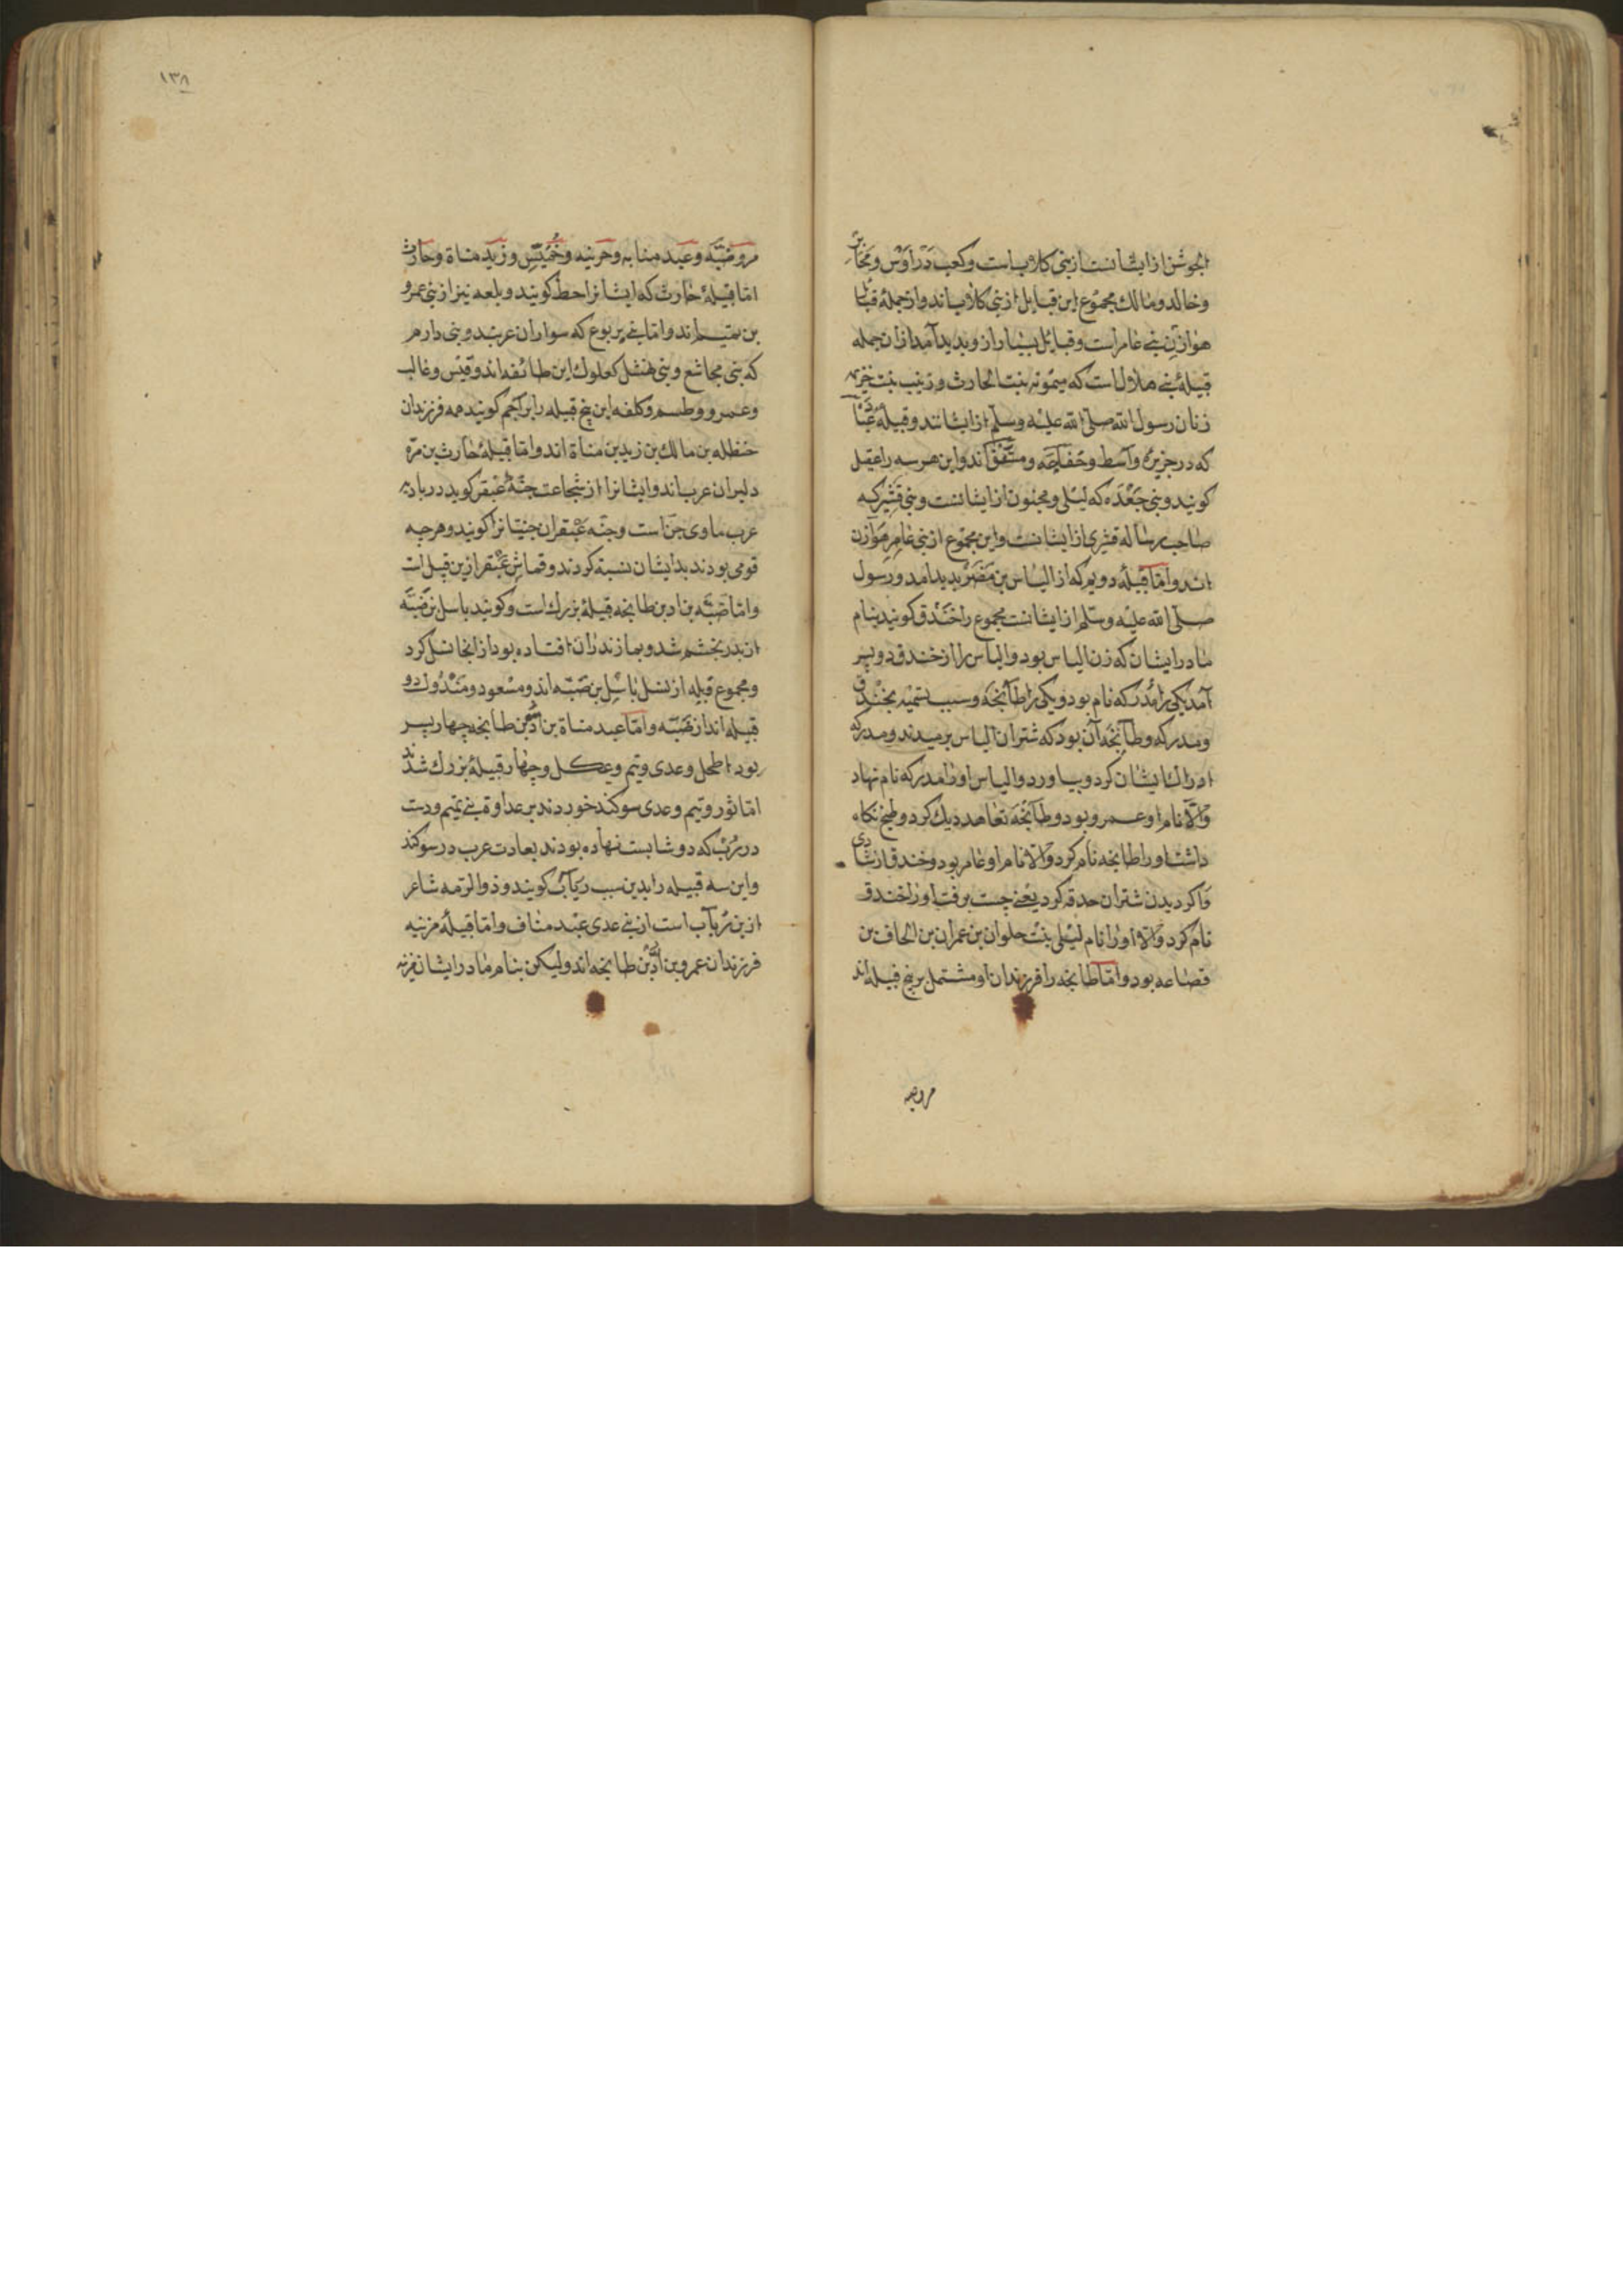 الجوشن از ایشانست از بنی کلابست و کعب و
وخالد و مالک مجموع این قبایل از بنی کلاب‌اند و از جملهٔ قبا
هوازن بنی عامر است و قبایل بسیار ازو بدید آمد از ان جمله
قبیلهٔ بنی هلال است که میمونه بنت الحارث و زینب بنت خزیمه
زنان رسول الله صلی الله علیه وسلم از ایشانند و قبیلهٔ
که در جزیرهٔ واسط و خفاجه و منتفق اند و این هر سه را عقیل
کویند و بنی جعده که لیلی و مجنون از ایشانست و بنی قشیر که
صاحب رساله قشیری از ایشانست و این مجموع از بنی عامر هوازن
اند و اما قبیلهٔ دویم که از الیاس بن مضر بدید امد و رسول
صلی الله علیه وسلم از ایشانست مجموع را خندق کویند بنام
مادر ایشان که زن الیاس بود و الیاس را از خندق دو پسر
آمد یکی را مدرکه نام بود و یکی را طابخه و سبب تسمیه بخندق
و مدرکه و طابخه آن بود که شتران الیاس برمیدند و مدرکه
ادراک ایشان کرد و بیاورد و الیاس او را مدرکه نام نهاد
والا نام او عمرو بود و طابخه تعاهد دیک کرد و طبخ نکاه
داشت او را طابخه نام کرد والا نام او عامر بود و خندق از شادی
وا کردیدن شتران حدقه کرد یعنی چست برفت او را خندق
نام کرد والا او را نام لیلی بنت حلوان بن عمران بن الحاف بن
قضاعه بود و اما طابخه را فرزندان او مشتمل بر پنج قبیله اند
مروضبه
١٣٨
مر و ضبه و عبد مناه و خمیس و زید مناة و حارث
اما قبیلهٔ حارث که ایشانرا حط کویند و بلعه نیز از بنی عمرو
بن تمیم اند و اما بنی یربوع که سواران عربند و بنی دارم
که بنی مجاشع و بنی نهشل کعلوک این طائفه اند و قیس و غالب
و عمرو و طسم و کلفه این پنج قبیله را براجم کویند همه فرزندان
حنظله بن مالک بن زید بن مناة اند و اما قبیلهٔ حارث بن مره
دلیران عرب اند و ایشانرا از شجاعت جنهٔ عبقر کوید در بادیه
عرب ماوی جن است و جنه عبقر ان جنیانرا کویند و هرچه
قومی بودند بدایشان نسبة کردند و قماش عبقر ازین قبل است
و اما ضبه بن اد بن طابخه قبیلهٔ بزرک است و کویند باسل بن ضبه
از پدر بخشم شد و بمازندران افتاده بود از انجا نسل کرد
و مجموع قبیله از نسل باسل بن ضبه اند و مسعود و مندوک دو
قبیله اند از ضبه و اما عبد مناة بن اد بن طابخه چهار پسر
بود اطحل و عدی و تیم و عکل و چهار قبیلهٔ بزرک شدند
اما ثور و تیم و عدی سوکند خوردند بر عداوة بنی تمیم و دست
در رب که دوشابست نهاده بودند بعادت عرب در سوکند
و این سه قبیله را بدین سبب رباب کویند و ذوالرمه شاعر
ازین رباب است از بنی عدی عبد مناف و اما قبیلهٔ مزنیه
فرزندان عمرو بن اد بن طابخه اند ولیکن بنام مادر ایشان مزنه